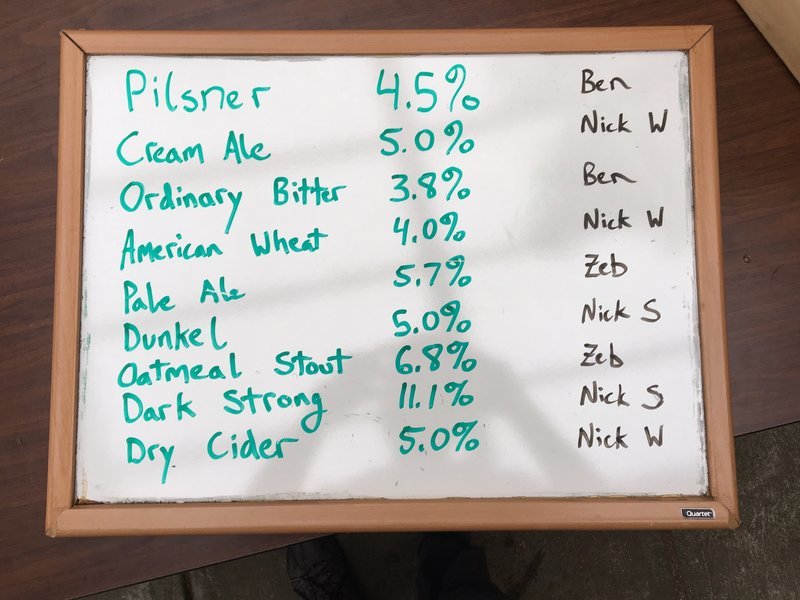 Pilsner 4.5% Ben
Cream Ale 5.0% Nick W
Ordinary Bitter 3.8% Ben
American Wheat 4.0% Nick W
Pale Ale 5.7% Zeb
Dunkel 5.0% Nick S
Oatmeal Stout 6.8% Zeb
Dark Strong 11.1% Nick S
Dry Cider 5.0% Nick W
Quartet